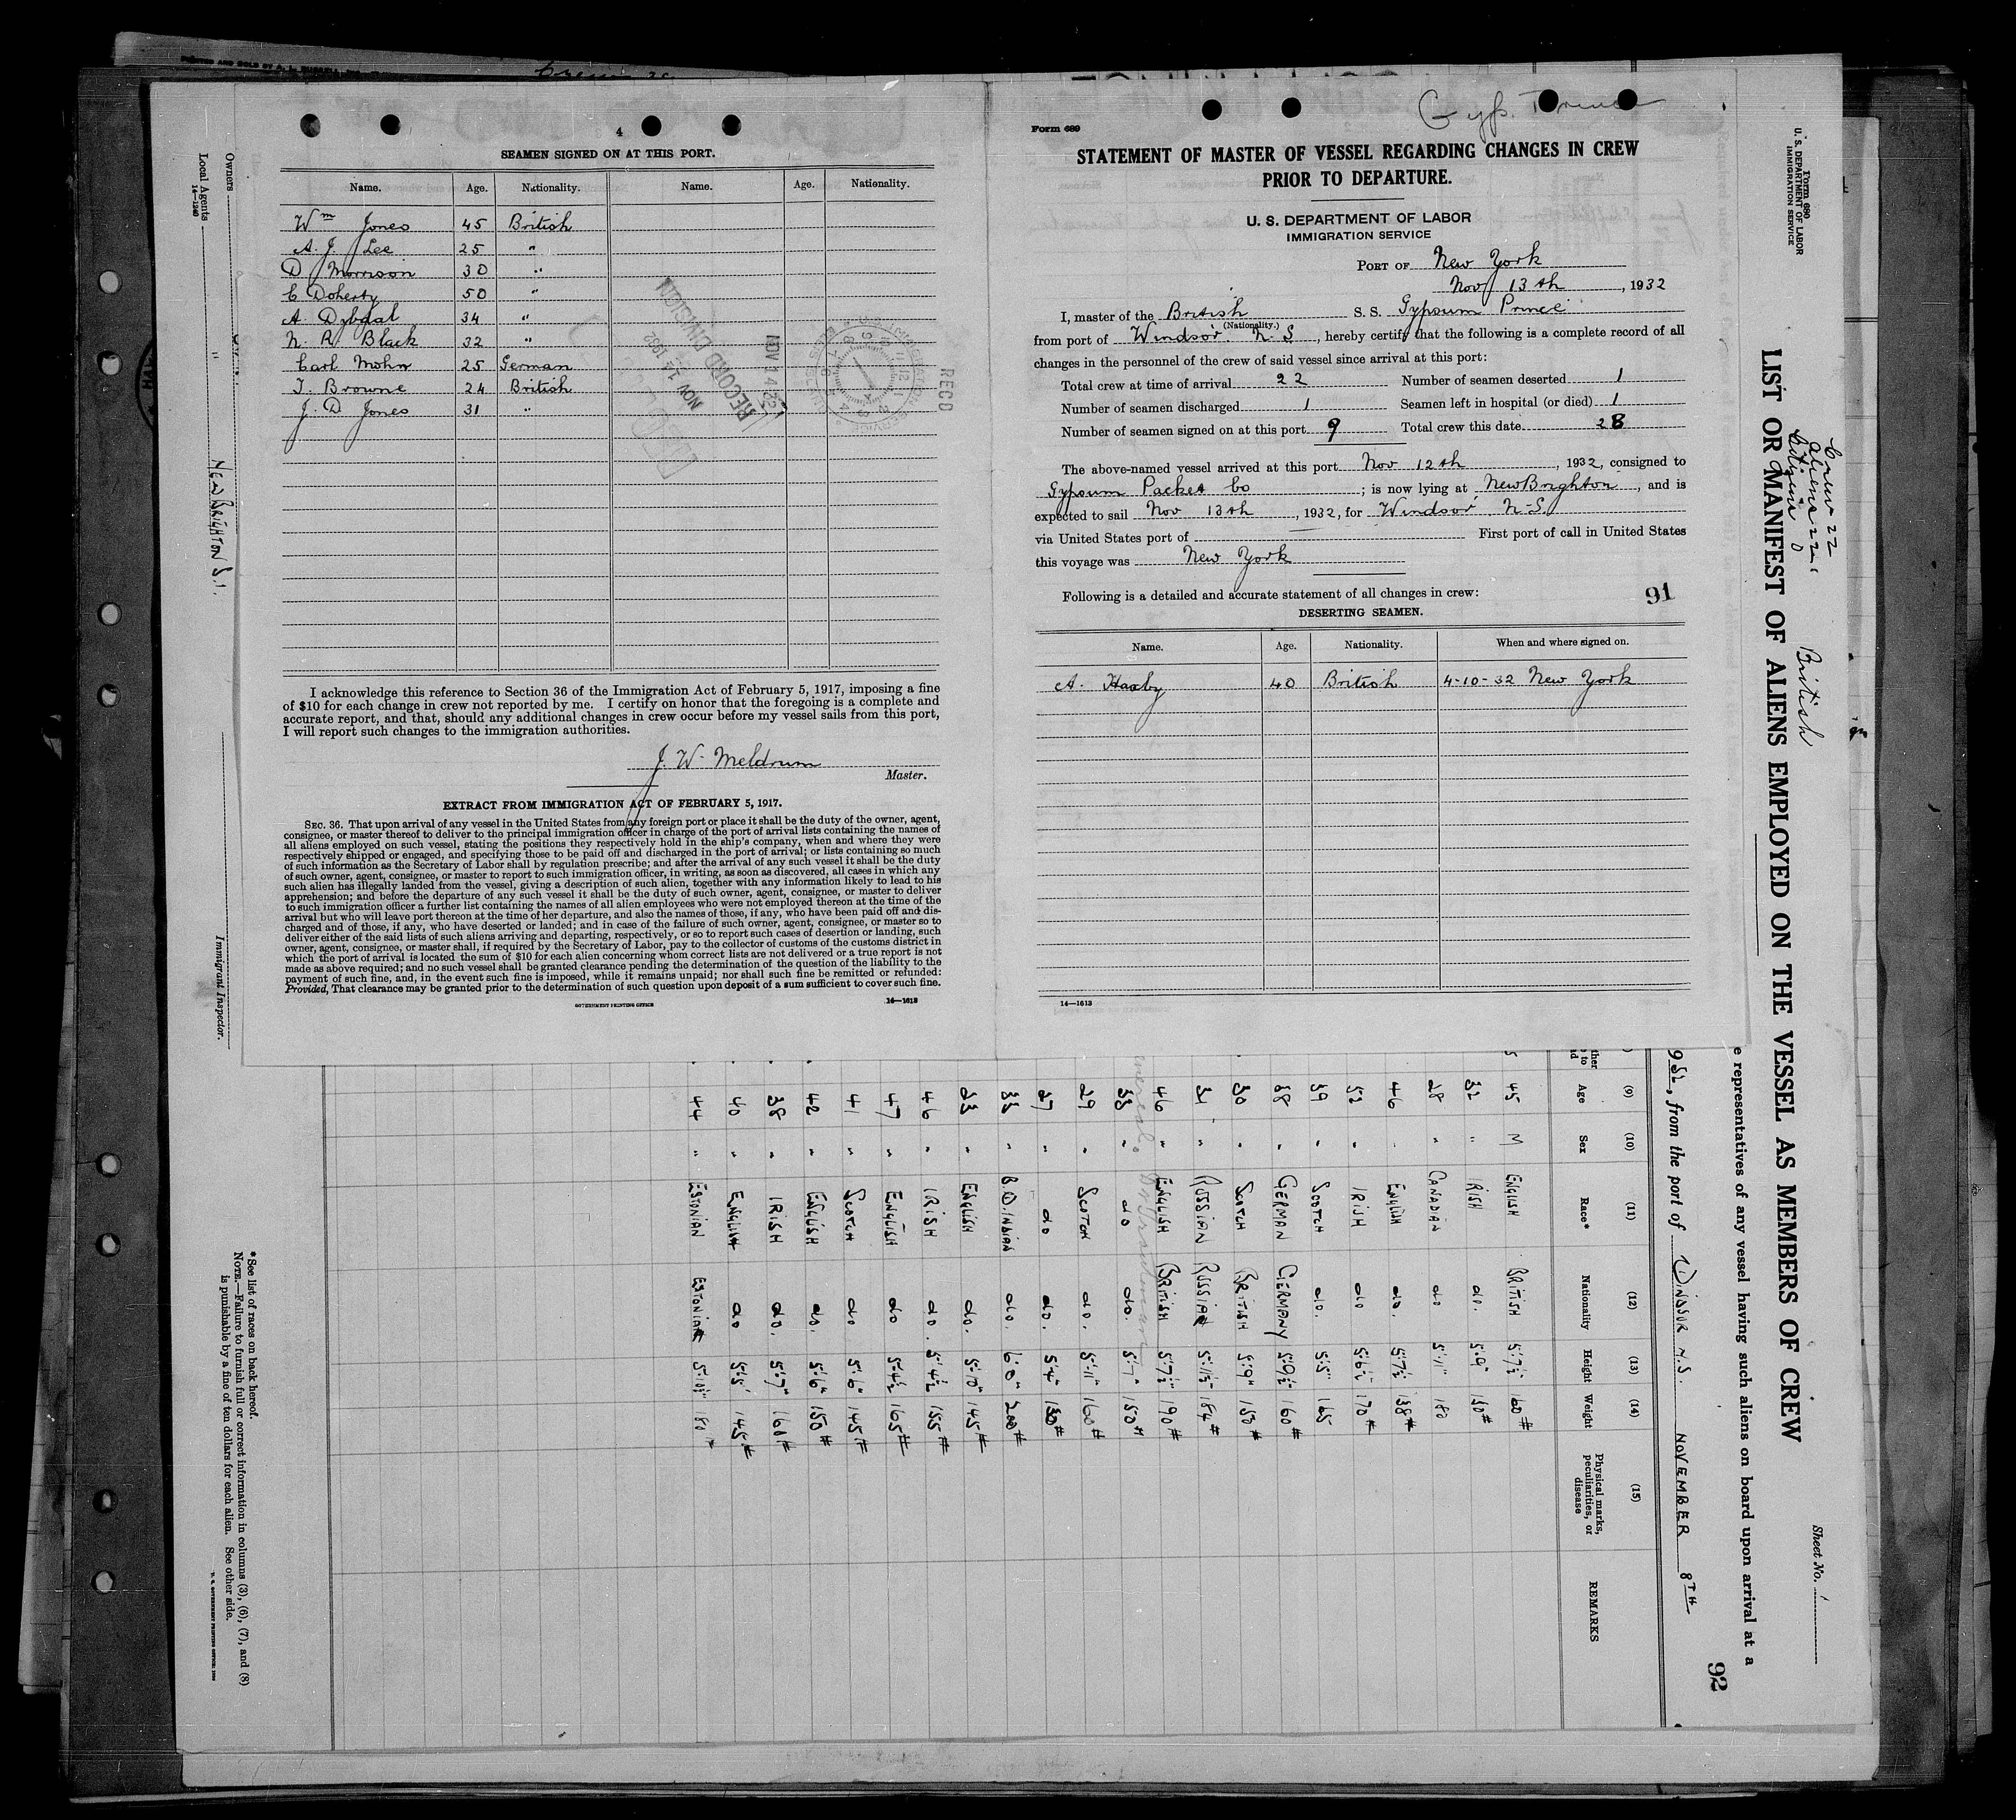 4
SEAMEN SIGNED ON AT THIS PORT.
Name. Age. Nationality. Name. Age. Nationality.
Wm Jones 45 British
A. J. Lee 25 "
D Morrison 30 "
C Doherty 50 "
A. Dybdal 34 "
N. R. Black 32 "
Carl Mohn 25 German
T. Browne 24 British
J. D Jones 31 "
RECORD DIVISION
NOV 14 1932
RECD
I acknowledge this reference to Section 36 of the Immigration Act of February 5, 1917, imposing a fine
of $10 for each change in crew not reported by me. I certify on honor that the foregoing is a complete and
accurate report, and that, should any additional changes in crew occur before my vessel sails from this port,
I will report such changes to the immigration authorities.
J. W. Meldrum
Master.
EXTRACT FROM IMMIGRATION ACT OF FEBRUARY 5, 1917.
SEC. 36. That upon arrival of any vessel in the United States from any foreign port or place it shall be the duty of the owner, agent,
consignee, or master thereof to deliver to the principal immigration officer in charge of the port of arrival lists containing the names of
all aliens employed on such vessel, stating the positions they respectively hold in the ship's company, when and where they were
respectively shipped or engaged, and specifying those to be paid off and discharged in the port of arrival; or lists containing so much
of such information as the Secretary of Labor shall by regulation prescribe; and after the arrival of any such vessel it shall be the duty
of such owner, agent, consignee, or master to report to such immigration officer, in writing, as soon as discovered, all cases in which any
such alien has illegally landed from the vessel, giving a description of such alien, together with any information likely to lead to his
apprehension; and before the departure of any such vessel it shall be the duty of such owner, agent, consignee, or master to deliver
to such immigration officer a further list containing the names of all alien employees who were not employed thereon at the time of the
arrival but who will leave port thereon at the time of her departure, and also the names of those, if any, who have been paid off and dis-
charged and of those, if any, who have deserted or landed; and in case of the failure of such owner, agent, consignee, or master so to
deliver either of the said lists of such aliens arriving and departing, respectively, or so to report such cases of desertion or landing, such
owner, agent, consignee, or master shall, if required by the Secretary of Labor, pay to the collector of customs of the customs district in
which the port of arrival is located the sum of $10 for each alien concerning whom correct lists are not delivered or a true report is not
made as above required; and no such vessel shall be granted clearance pending the determination of the question of the liability to the
payment of such fine, and, in the event such fine is imposed, while it remains unpaid; nor shall such fine be remitted or refunded:
Provided, That clearance may be granted prior to the determination of such question upon deposit of a sum sufficient to cover such fine.
GOVERNMENT PRINTING OFFICE 14—1613
Form 689
STATEMENT OF MASTER OF VESSEL REGARDING CHANGES IN CREW
PRIOR TO DEPARTURE.
U. S. DEPARTMENT OF LABOR
IMMIGRATION SERVICE
PORT OF New York
Nov 13th, 1932
I, master of the British S. S. Gypsum Prince
(Nationality.)
from port of Windsor N. S, hereby certify that the following is a complete record of all
changes in the personnel of the crew of said vessel since arrival at this port:
Total crew at time of arrival 22 Number of seamen deserted 1
Number of seamen discharged 1 Seamen left in hospital (or died) 1
Number of seamen signed on at this port 9 Total crew this date 28
The above-named vessel arrived at this port Nov 12th, 1932, consigned to
Gypsum Packet Co; is now lying at New Brighton, and is
expected to sail Nov 13th, 1932, for Windsor N.S.
via United States port of First port of call in United States
this voyage was New York
Following is a detailed and accurate statement of all changes in crew: 91
DESERTING SEAMEN.
Name. Age. Nationality. When and where signed on.
A. Haxby 40 British 4-10-32 New York
14—1613
Form 680
U. S. DEPARTMENT OF LABOR
IMMIGRATION SERVICE
LIST OR MANIFEST OF ALIENS EMPLOYED ON THE VESSEL AS MEMBERS OF CREW
Crew 22
Aliens 22
Citizens 0
British
Sheet No. 1
e representatives of any vessel having such aliens on board upon arrival at a
932, from the port of WINDSOR N.S. NOVEMBER 8TH
92
(9) (10) (11) (12) (13) (14) (15)
Age Sex Race* Nationality Height Weight Physical marks, peculiarities, or disease REMARKS
45 M ENGLISH BRITISH 5'7½ 160#
32 " IRISH do. 5'9" 150#
28 " CANADIAN do 5'11" 180
46 " ENGLISH do. 5'7½ 138#
52 " IRISH do 5'6½ 170#
39 " SCOTCH do. 5'5" 165
38 " GERMAN GERMANY 5'9½ 160#
30 " SCOTCH BRITISH 5'9" 150#
31 " RUSSIAN RUSSIA 5'11½ 184#
46 " ENGLISH BRITISH 5'7½" 190#
33 " do do. 5'7" 150#
29 " SCOTCH do. 5'11" 160#
27 " do do. 5'4" 130#
33 " B.W.INDIAN do. 6'0" 200#
23 " ENGLISH do. 5'10" 145#
46 " IRISH do. 5'4½ 155#
47 " ENGLISH do 5'4½ 165#
41 " SCOTCH do 5'6" 145#
42 " ENGLISH do. 5'6" 150#
38 " IRISH do. 5'7" 160#
40 " ENGLISH do 5'5" 145#
44 " ESTONIAN ESTONIA 5'10½" 180#
*See list of races on back hereof.
NOTE.—Failure to furnish full or correct information in columns (3), (6), (7), and (8)
is punishable by a fine of ten dollars for each alien. See other side.
Owners
Local Agents "
14—1240
NEW BRIGHTON S.I.
Immigrant Inspector.